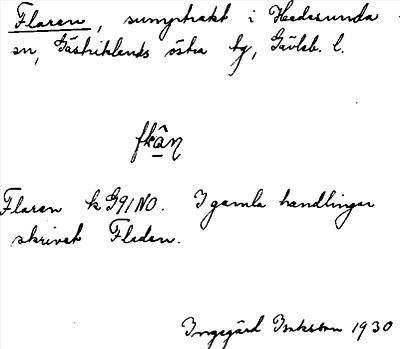 Flaren, sumptrakt i Hedesunda
sn, Gästriklands östra tg, Gävleb. l.
Flaren k G91NO. I gamla handlingar
skrivet Fladen.
Ingegärd Isaksson 1930